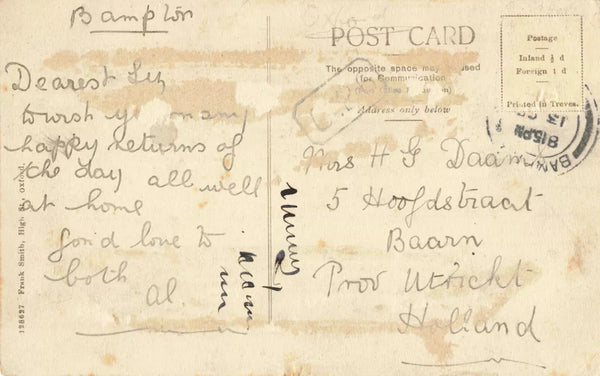 Bampton
POST CARD
The opposite space may used
(for Communication
Address only below
Postage
Inland ½ d
Foreign 1 d
Printed in Treves.
815PM
13
BAM
Dearest
to wish you many
happy returns of
the day all well
at home
fond love to
both
al.
Mrs H G Daam
5 Hoofdstraat
Baarn
Prov Utricht
Holland
128627 Frank Smith, High St, oxford.